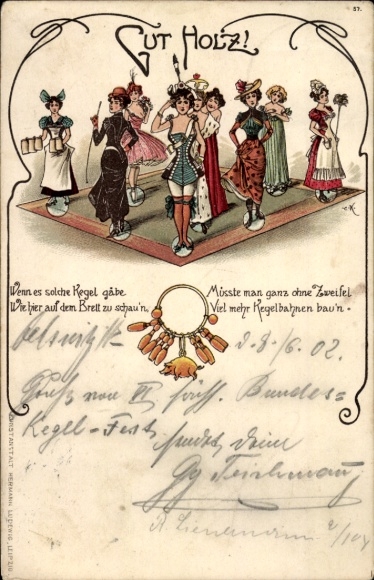 57.
Gut Holz!
Wenn es solche Kegel gäbe
Wie hier auf dem Brett zu schau'n,
Müsste man ganz ohne Zweifel
Viel mehr Kegelbahnen bau'n.
d. 8./6. 02.
Gruß vom VI sächs. Bundes-
Kegel-Fest sendet Dein
KUNSTANSTALT HERMANN LUDEWIG, LEIPZIG